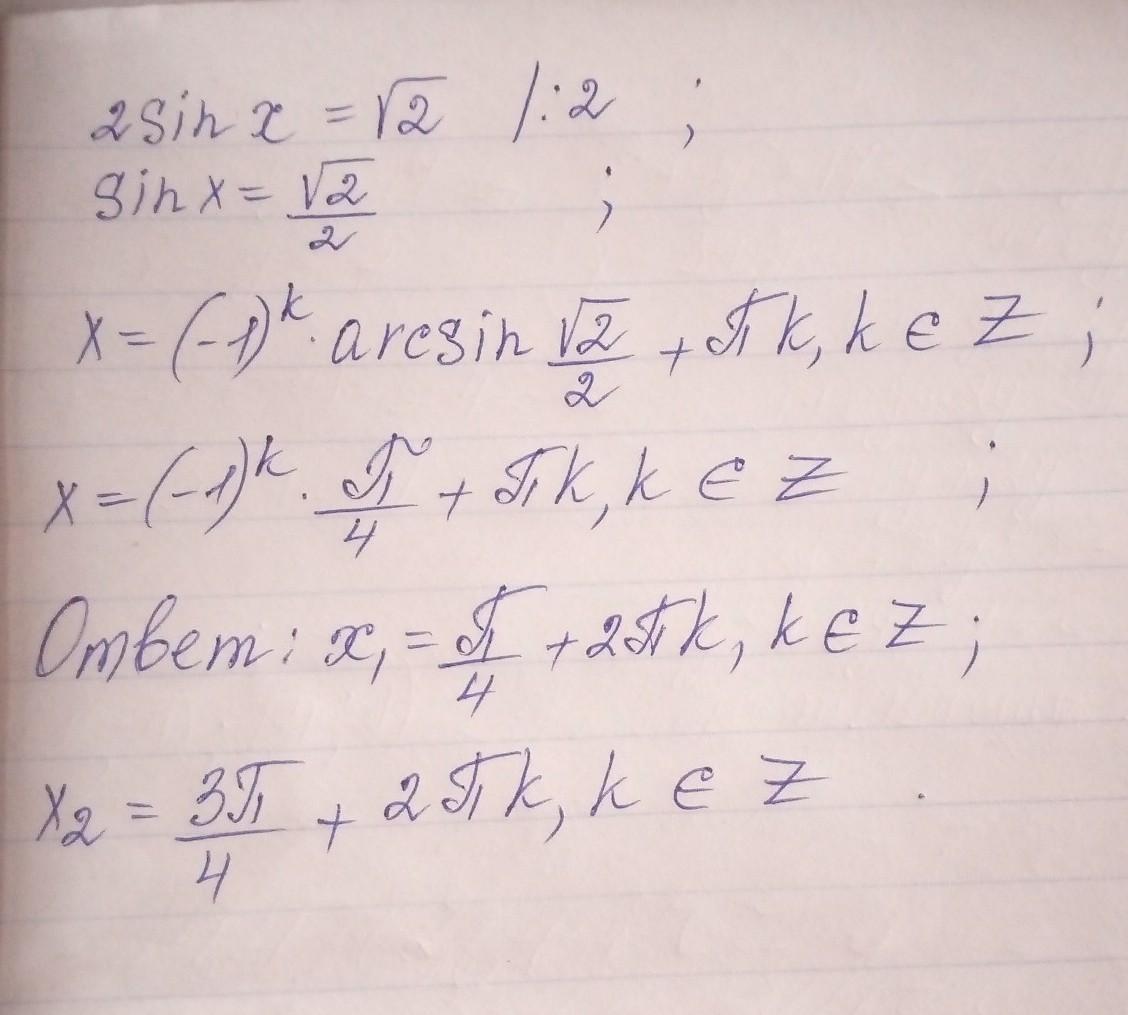 2sin x = √2 /:2 ;
sin x = √2/2 ;
x = (-1)^k · arcsin √2/2 + πk, k ∈ Z ;
x = (-1)^k · π/4 + πk, k ∈ Z ;
Ответ: x₁ = π/4 + 2πk, k ∈ Z ;
x₂ = 3π/4 + 2πk, k ∈ Z .